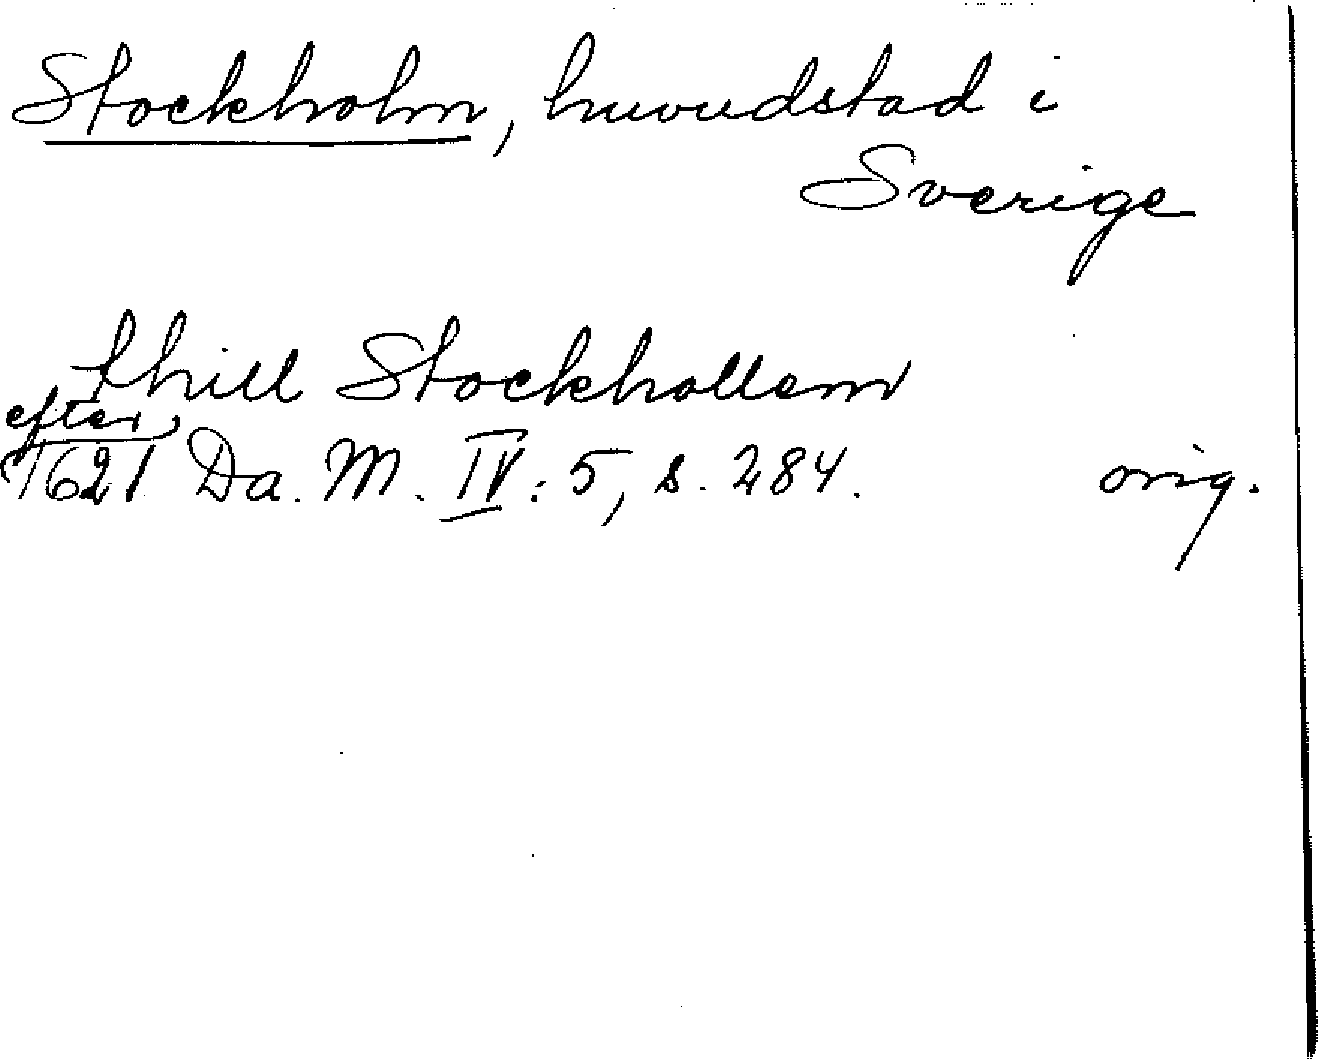 Stockholm, huvudstad i
Sverige
thill Stockhollem
efter
1621 Da. M. IV: 5, s. 284. orig.